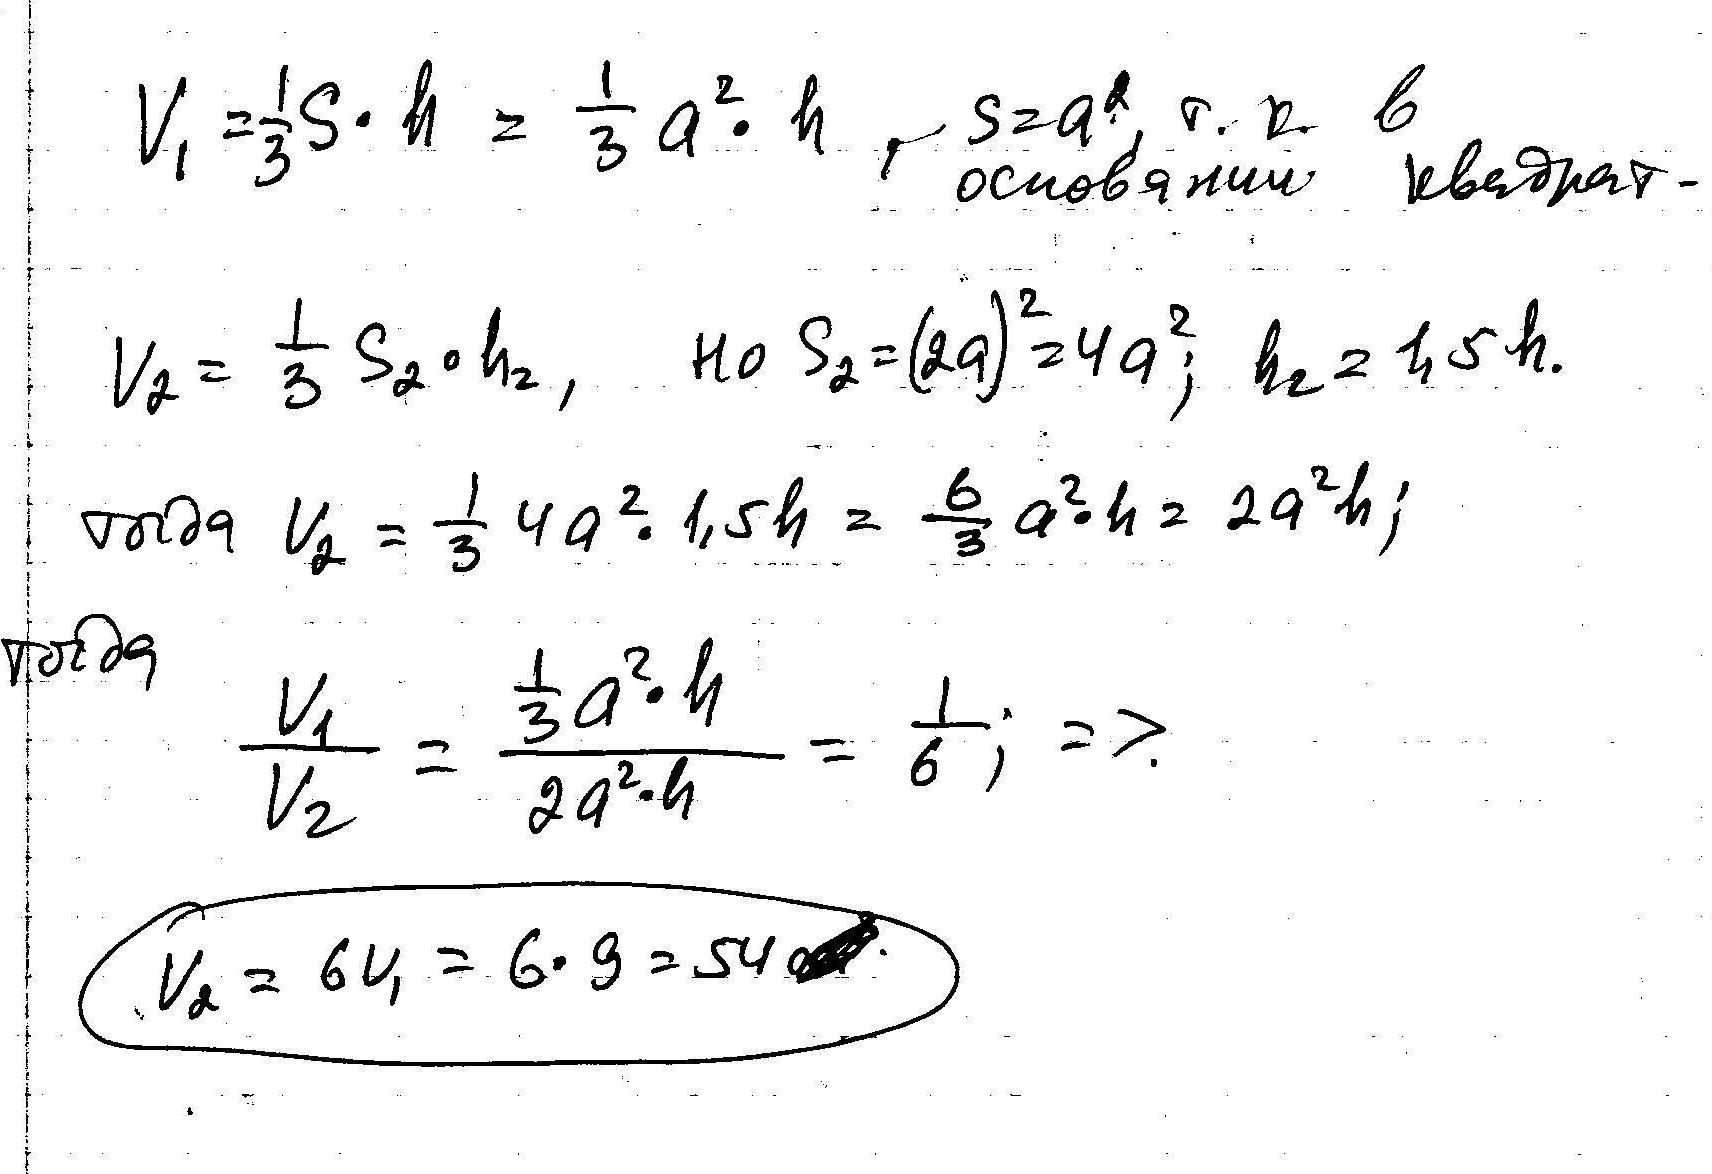 V₁ = 1/3 S · h = 1/3 a² · h, S = a², т. к. в
основании квадрат-
V₂ = 1/3 S₂ · h₂, но S₂ = (2a)² = 4a²; h₂ = 1,5h.
тогда V₂ = 1/3 4a² · 1,5h = 6/3 a² · h = 2a²h;
тогда
V₁/V₂ = (1/3 a² · h)/(2a² · h) = 1/6; =>.
V₂ = 6V₁ = 6 · 9 = 54